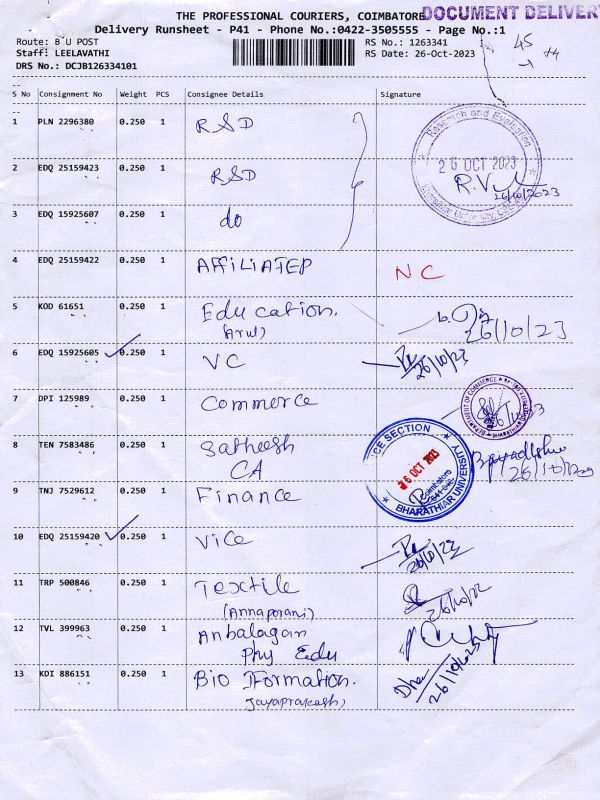 THE PROFESSIONAL COURIERS, COIMBATORE
DOCUMENT DELIVER
Delivery Runsheet - P41 - Phone No.:0422-3505555 - Page No.:1
Route: B U POST
Staff: LEELAVATHI
DRS No.: DCJB126334101
RS No.: 1263341
RS Date: 26-Oct-2023
45
S No Consignment No Weight PCS Consignee Details Signature
1 PLN 2296380 0.250 1 RSD
Research and Evaluation
26 OCT 2023
R.V
26/10/2023
2 EDQ 25159423 0.250 1 RSD
3 EDQ 15925607 0.250 1 do
4 EDQ 25159422 0.250 1 AFFILIATED NC
5 KOD 61651 0.250 1 Education. 26/10/23
(Arul)
6 EDQ 15925605 0.250 1 VC 26/10/23
7 DPI 125989 0.250 1 Commerce
DEPARTMENT OF COMMERCE
8 TEN 7583486 0.250 1 Satheesh
CA
26/10/2023
CE SECTION
26 OCT 2023
Coimbatore
641 046
BHARATHIAR UNIVERSITY
9 TNJ 7529612 0.250 1 Finance
10 EDQ 25159420 0.250 1 Vice 26/10/23
11 TRP 500846 0.250 1 Textile
(Annaporani)
12 TVL 399963 0.250 1 Anbalagan
Phy Edu
13 KDI 886151 0.250 1 Bio Formation.
(Jayaprakash)
26/10/23